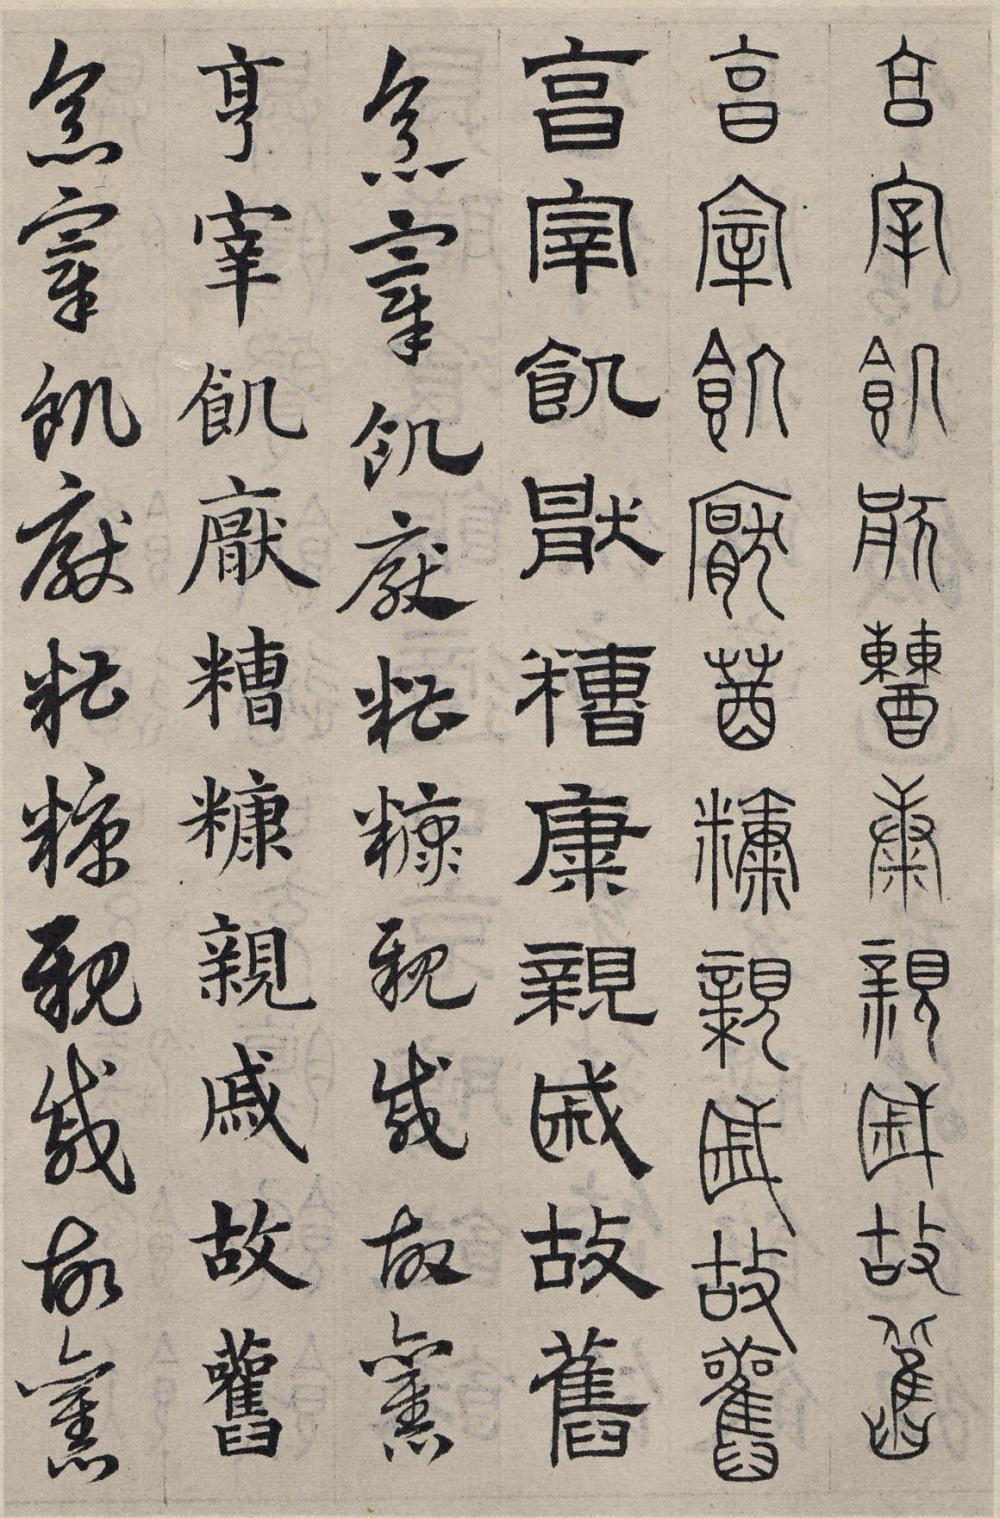 亯宰飢猒糟康親戚故舊
亯宰飢厭糟糠親戚故舊
亯宰飢猒糟康親戚故舊
烹宰飢厭糟糠親戚故舊
亨宰飢厭糟糠親戚故舊
烹宰飢厭糟糠親戚故舊